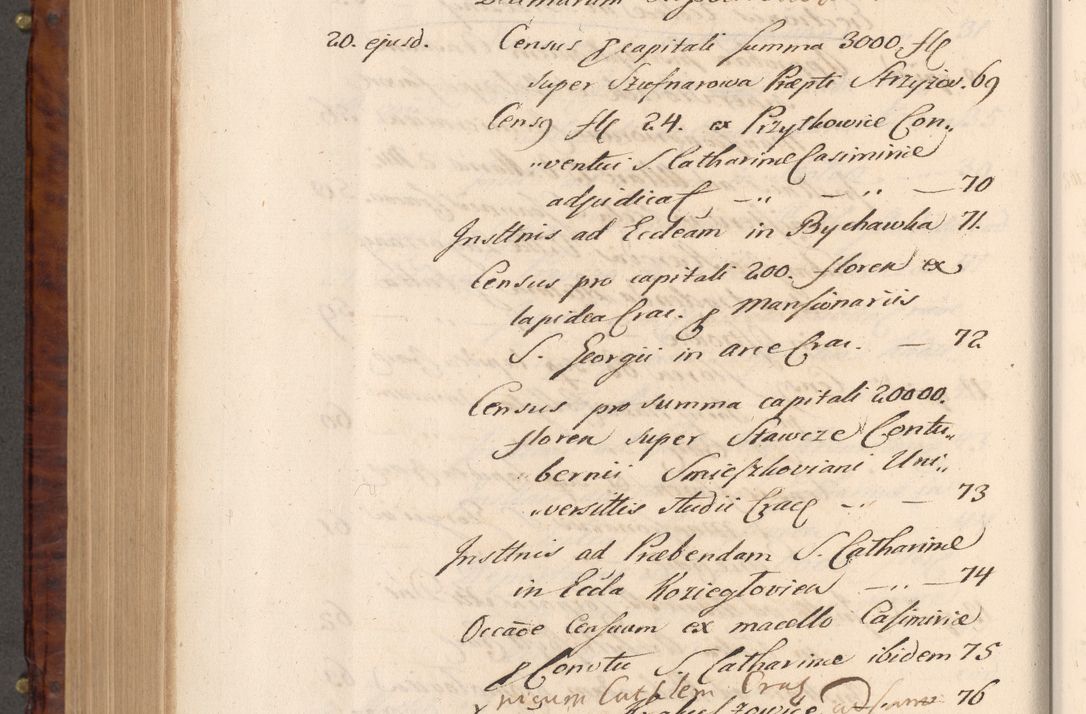 20. ejusd. Census p capitali summa 3000. fl
super Szufnarowa Præpti Strzyzov. 69
Censq fl 24. ex Przytkowice Con„
„ventui S. Catharinæ Casimiriæ
adjudicat — „ — „ — 70
Insttnis ad Eccleam in Bychawka 71.
Census pro capitali 200. floren ex
lapidea Crac. p Mansionariis
S. Georgii in arce Crac. — 72
Census pro summa capitali 20000.
floren super Stawcze Contu„
„bernii Smieszkoviani Uni„
„versittis studii Crac — „ — 73
Insttnis ad Præbendam S. Catharinæ
in Eccla Koziegłovien — „ — 74
Occaoe Censuum ex macello Casimiriæ
p Convtu S. Catharinæ ibidem 75
76